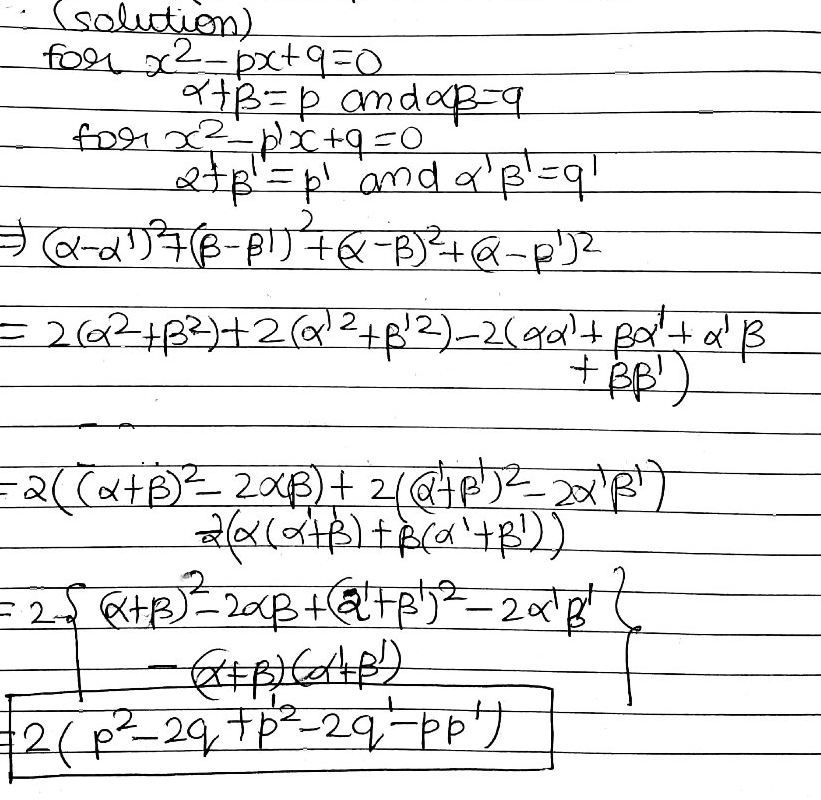 (solution)
for x² - px + q = 0
α+β = p and αβ = q
for x² - p'x + q = 0
α'+β' = p' and α'β' = q'
⇒ (α-α')² + (β-β')² + (α-β)² + (α-p')²
= 2(α²+β²) + 2(α'²+β'²) - 2(αα' + βα' + α'β
+ ββ')
= 2((α+β)² - 2αβ) + 2((α'+β')² - 2α'β')
-2(α(α'+β') + β(α'+β'))
= 2{(α+β)² - 2αβ + (α'+β')² - 2α'β'
- (α+β)(α'+β')}
= 2(p² - 2q + p'² - 2q' - pp')